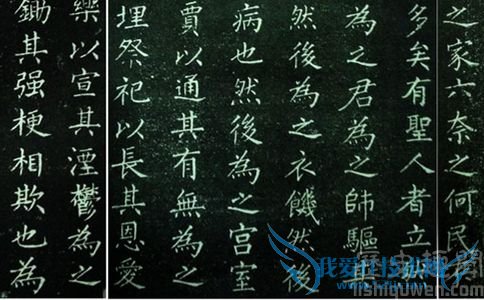 之家六奈之何民
多矣有聖人者立
為之君為之師驅
然後為之衣饑然後
病也然後為之宫室
賈以通其有無為之
埋祭祀以長其恩愛
樂以宣其淫鬱為之
鋤其强梗相欺也為
lishiquwen.com